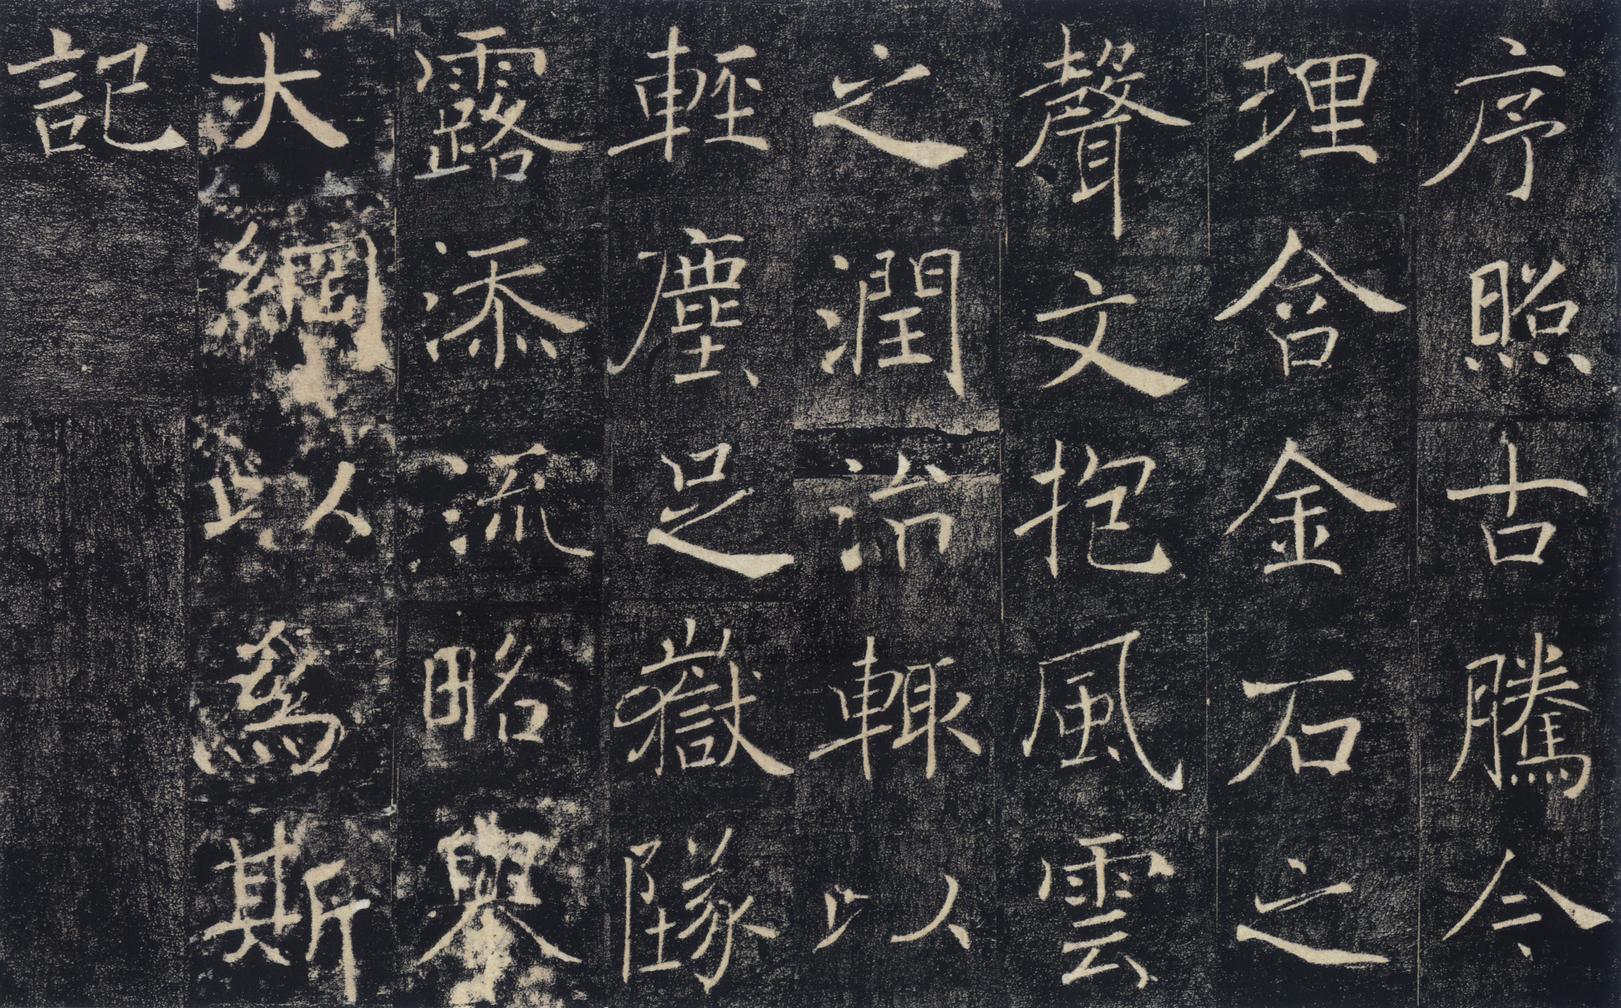 序照古騰今
理含金石之
聲文抱風雲
之潤治輒以
輕塵足嶽墜
露添流略舉
大綱以為斯
記